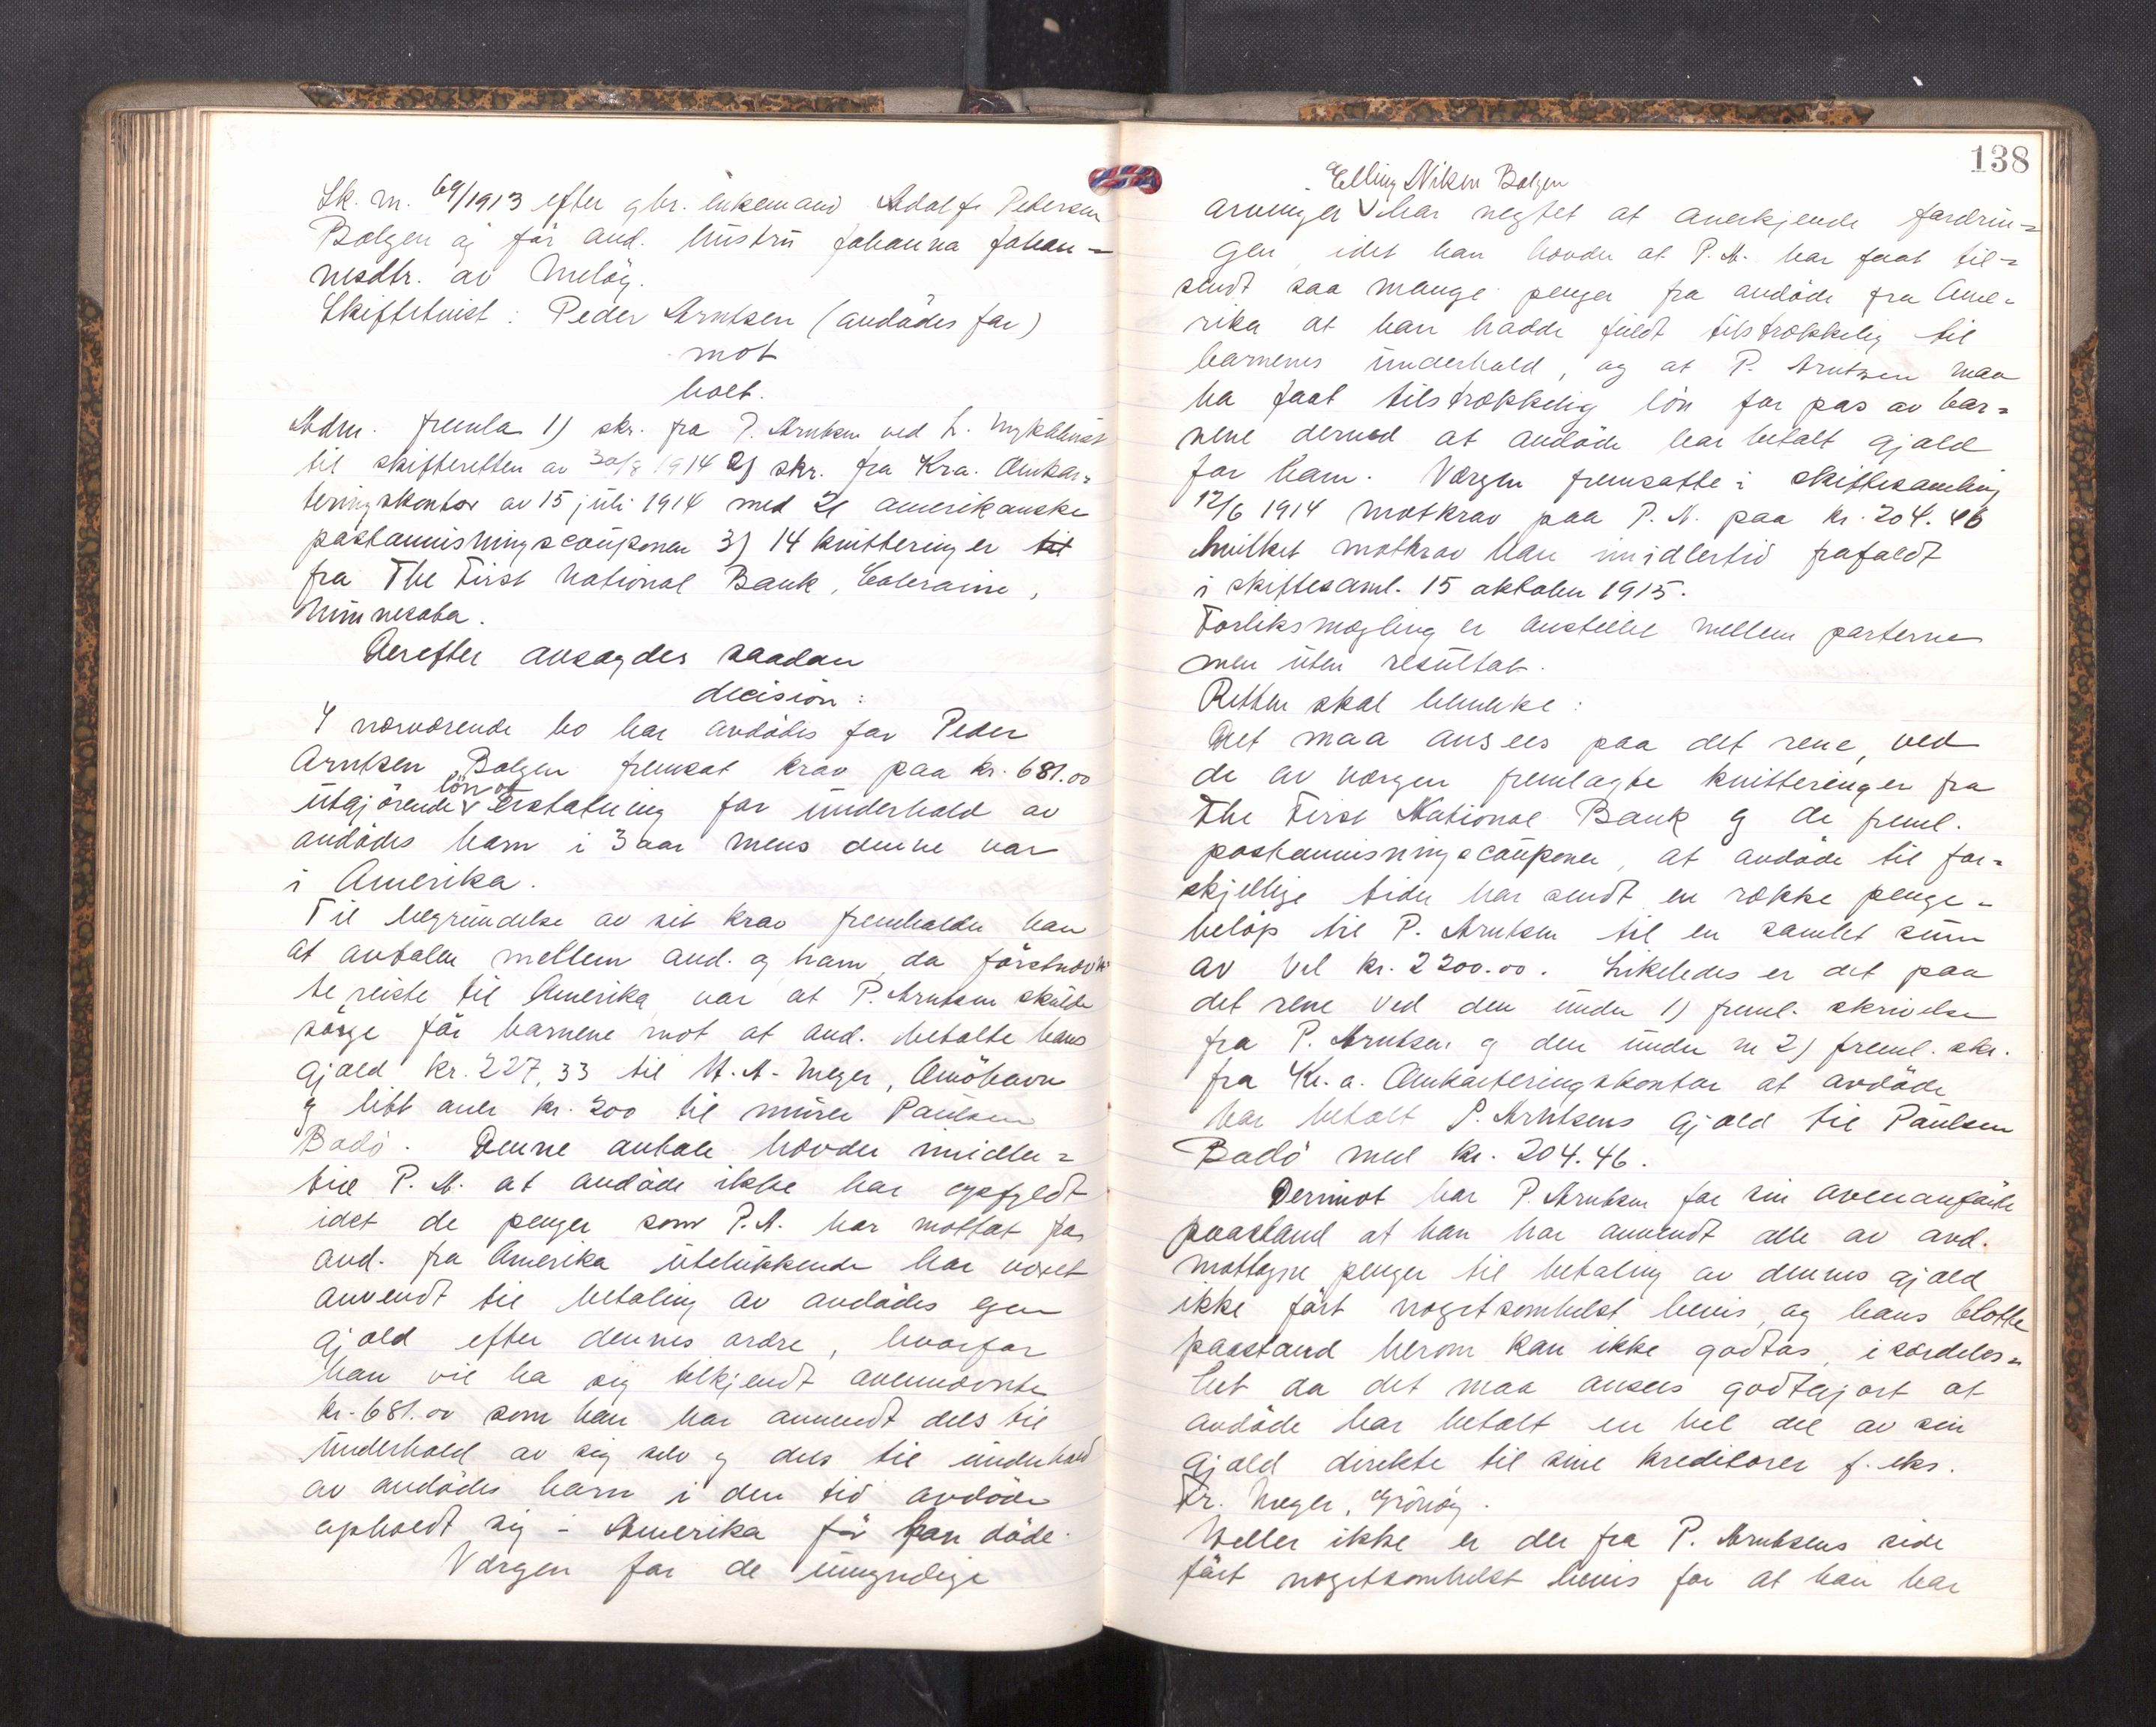 Sk. nr. 69/1913 efter gbr. enkemand Adolf Pedersen
Bolgen og før avd. hustru Johanna Johan=
nesdtr. av Meløy.
Skiftetvist: Peder Arntsen (avdødes far)
mot
boet.
Adm. fremla 1) skr. fra P. Arntsen ved
til skifteretten av 30/8 1914 2) skr. fra Kra. Omkar=
teringskontor av 15 juli 1914 med 21 amerikanske
postanvisningscouponer 3) 14 kvitteringer til
fra The First National Bank, Coleraine,
Minnesota.
Derefter avsagdes saadan
decision:
I nærværende bo har avdødes far Peder
Arntsen Bolgen fremsat krav paa kr. 681.00
utgjørende lön og erstatning for underhold av
avdødes barn i 3 aar mens denne var
i Amerika.
Til begrundelse av sit krav fremholder han
at avtalen mellem avd. og ham, da førstnævn
te reiste til Amerika var at P. Arntsen skulde
sørge for barnene mot at avd. betalte hans
gjæld kr. 227,33 til A. A. Meyer, Ørnes
og litt over kr. 200 til murer Paulsen
Bodö. Denne avtale hævder imidler=
tid P. A. at avdøde ikke har opfyldt
idet de penger som P.A. har mottat fra
avd. fra Amerika utelukkende har været
anvendt til betaling av avdødes egen
gjæld efter dennes ordre, hvorfor
han vil ha sig tilkjendt ovennævnte
kr. 681.00 som han har anvendt dels til
underhold av sig selv og dels til underhold
av avdødes barn i den tid avdøde
opholdt sig i Amerika før han døde.
Værgen for de umyndige
138
Elling Nilsen Bolgen
arvinger har negtet at anerkjende fordrin=
gen, idet han hævder at P. A. har faat til=
sendt saa mange penger fra avdøde fra Ame=
rika at han hadde fuldt tilstrækkelig til
barnenes underhold, og at P. Arntsen maa
ha faat tilstrækkelig lön for pas av bar=
nene derved at avdøde har betalt gjæld
for ham. Værgen fremsatte i skiftesamling
12/6 1914 motkrav paa P. A. paa kr. 204.46
hvilket motkrav han imidlertid frafaldt
i skiftesaml. 15 oktober 1915.
Forliksmægling er anstillet mellem parterne
men uten resultat.
Retten skal bemerke:
Det maa ansees paa det rene, ved
de av værgen fremlagte kvitteringer fra
The First National Bank og de freml.
postanvisningscouponer, at avdøde til for=
skjellige tider har sendt en række penge=
beløp til P. Arntsen til en samlet sum
av vel kr. 2200.00. Likeledes er det paa
det rene ved den under 1) freml. skrivelse
fra P. Arntsen og den under nr 2) freml. skr.
fra Kr.a. Omkarteringskontor at avdøde
har betalt P. Arntsens gjæld til Paulsen
Bodö med kr. 204.46.
Derimot har P. Arntsen for sin ovenanførte
paastand at han har anvendt alle av avd.
mottagne penger til betaling av dennes gjæld
ikke ført nogetsomhelst bevis, og hans blotte
paastand herom kan ikke godtas, i særdeles=
het da det maa ansees godtgjort at
avdøde har betalt en hel del av sin
gjæld direkte til sine kreditorer f. eks.
Fr. Meyer, Grönøy.
Heller ikke er der fra P. Arntsens side
ført nogetsomhelst bevis for at han har